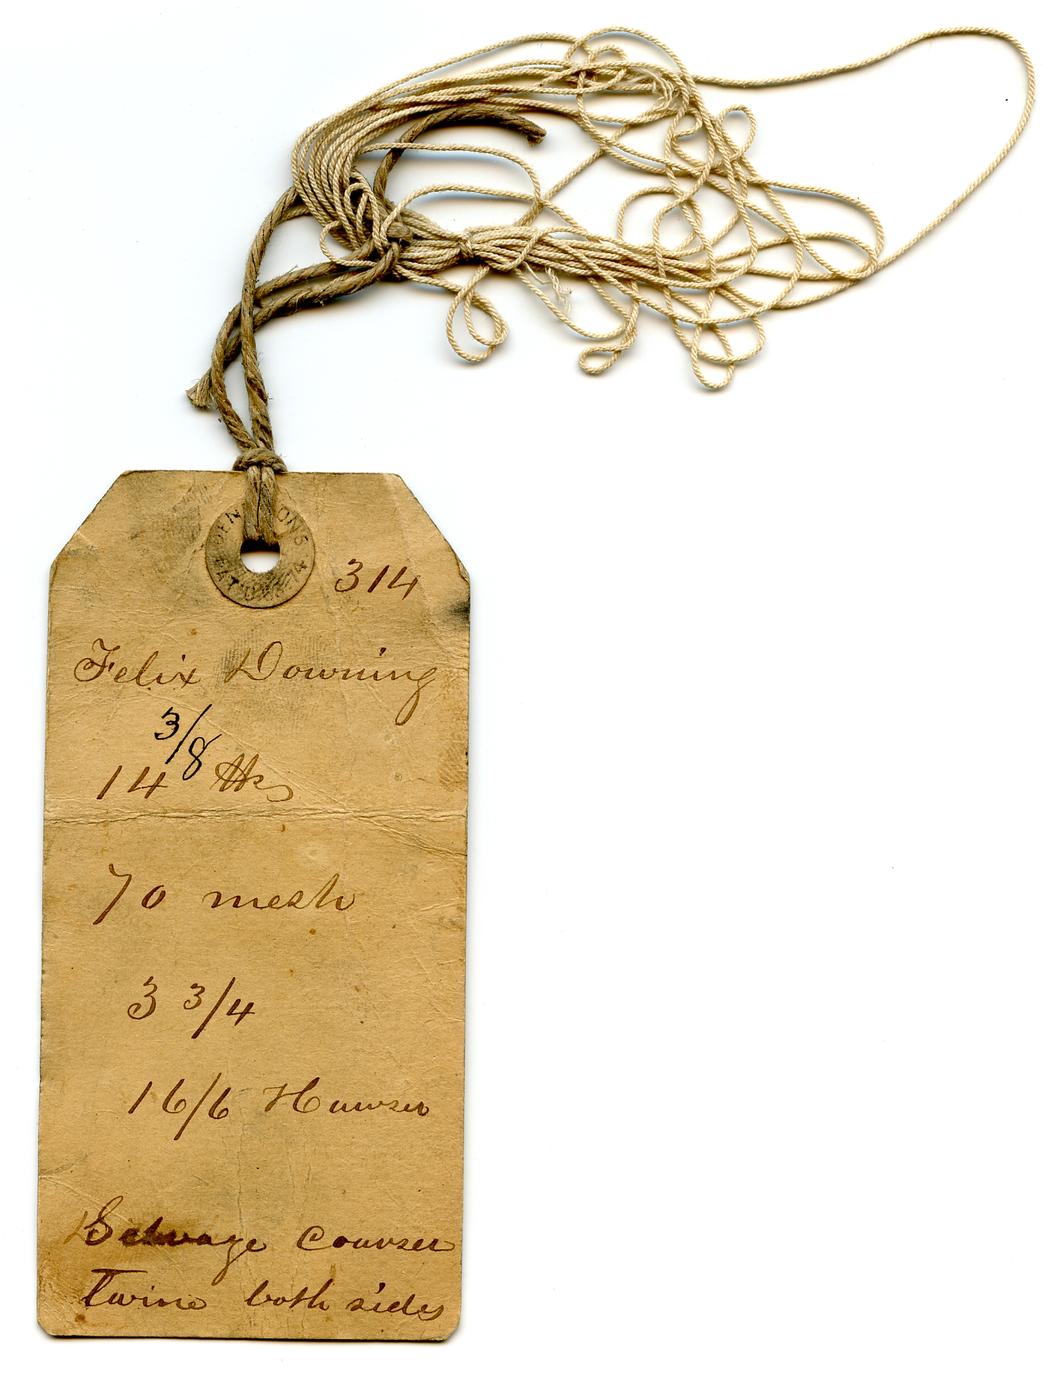 DENNISON'S
PAT'D
314
Felix Downing
3/8
14 lbs
70 mesh
3 3/4
16/6 Hawser
Selvage Courser
Twine both sides